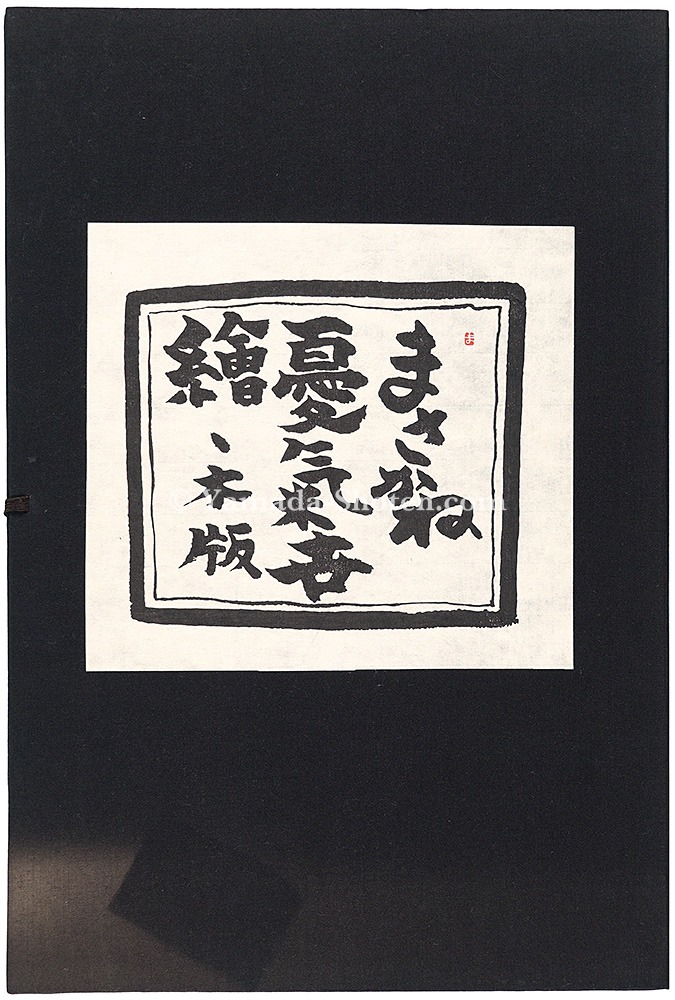 まさかね
憂氣世
繪、大版
© Yamada Shoten.com